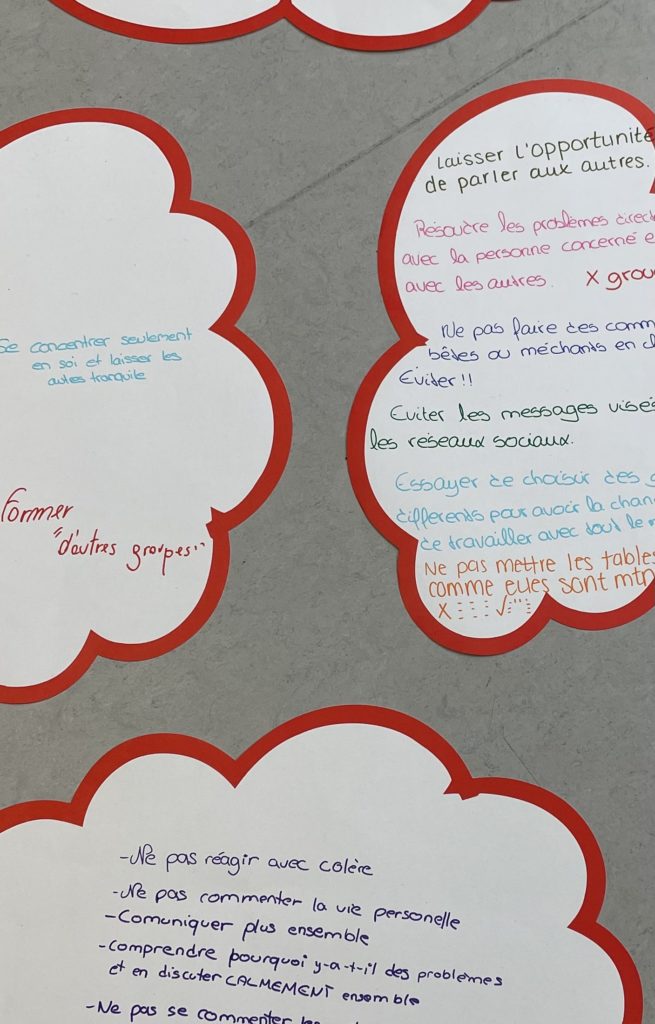 Se concentrer seulement
en soi et laisser les
autes tranquile
Former
"d'autres groupes"
Laisser l'opportunité
de parler aux autres.
Résoudre les problèmes
avec la personne concerné
avec les autres. X
Ne pas faire des
bêtes ou méchants en
Eviter!!
Eviter les messages
les réseaux sociaux.
Essayer de choisir des
differents pour avoir la
de travailler avec tout le
Ne pas mettre les tables
comme elles sont mtn
X
-Ne pas réagir avec colère
-Ne pas commenter la vie personelle
-Comuniquer plus ensemble
-Comprendre pourquoi y-a-t-il des problèmes
et en discuter CALMEMENT ensemble
-Ne pas se commenter